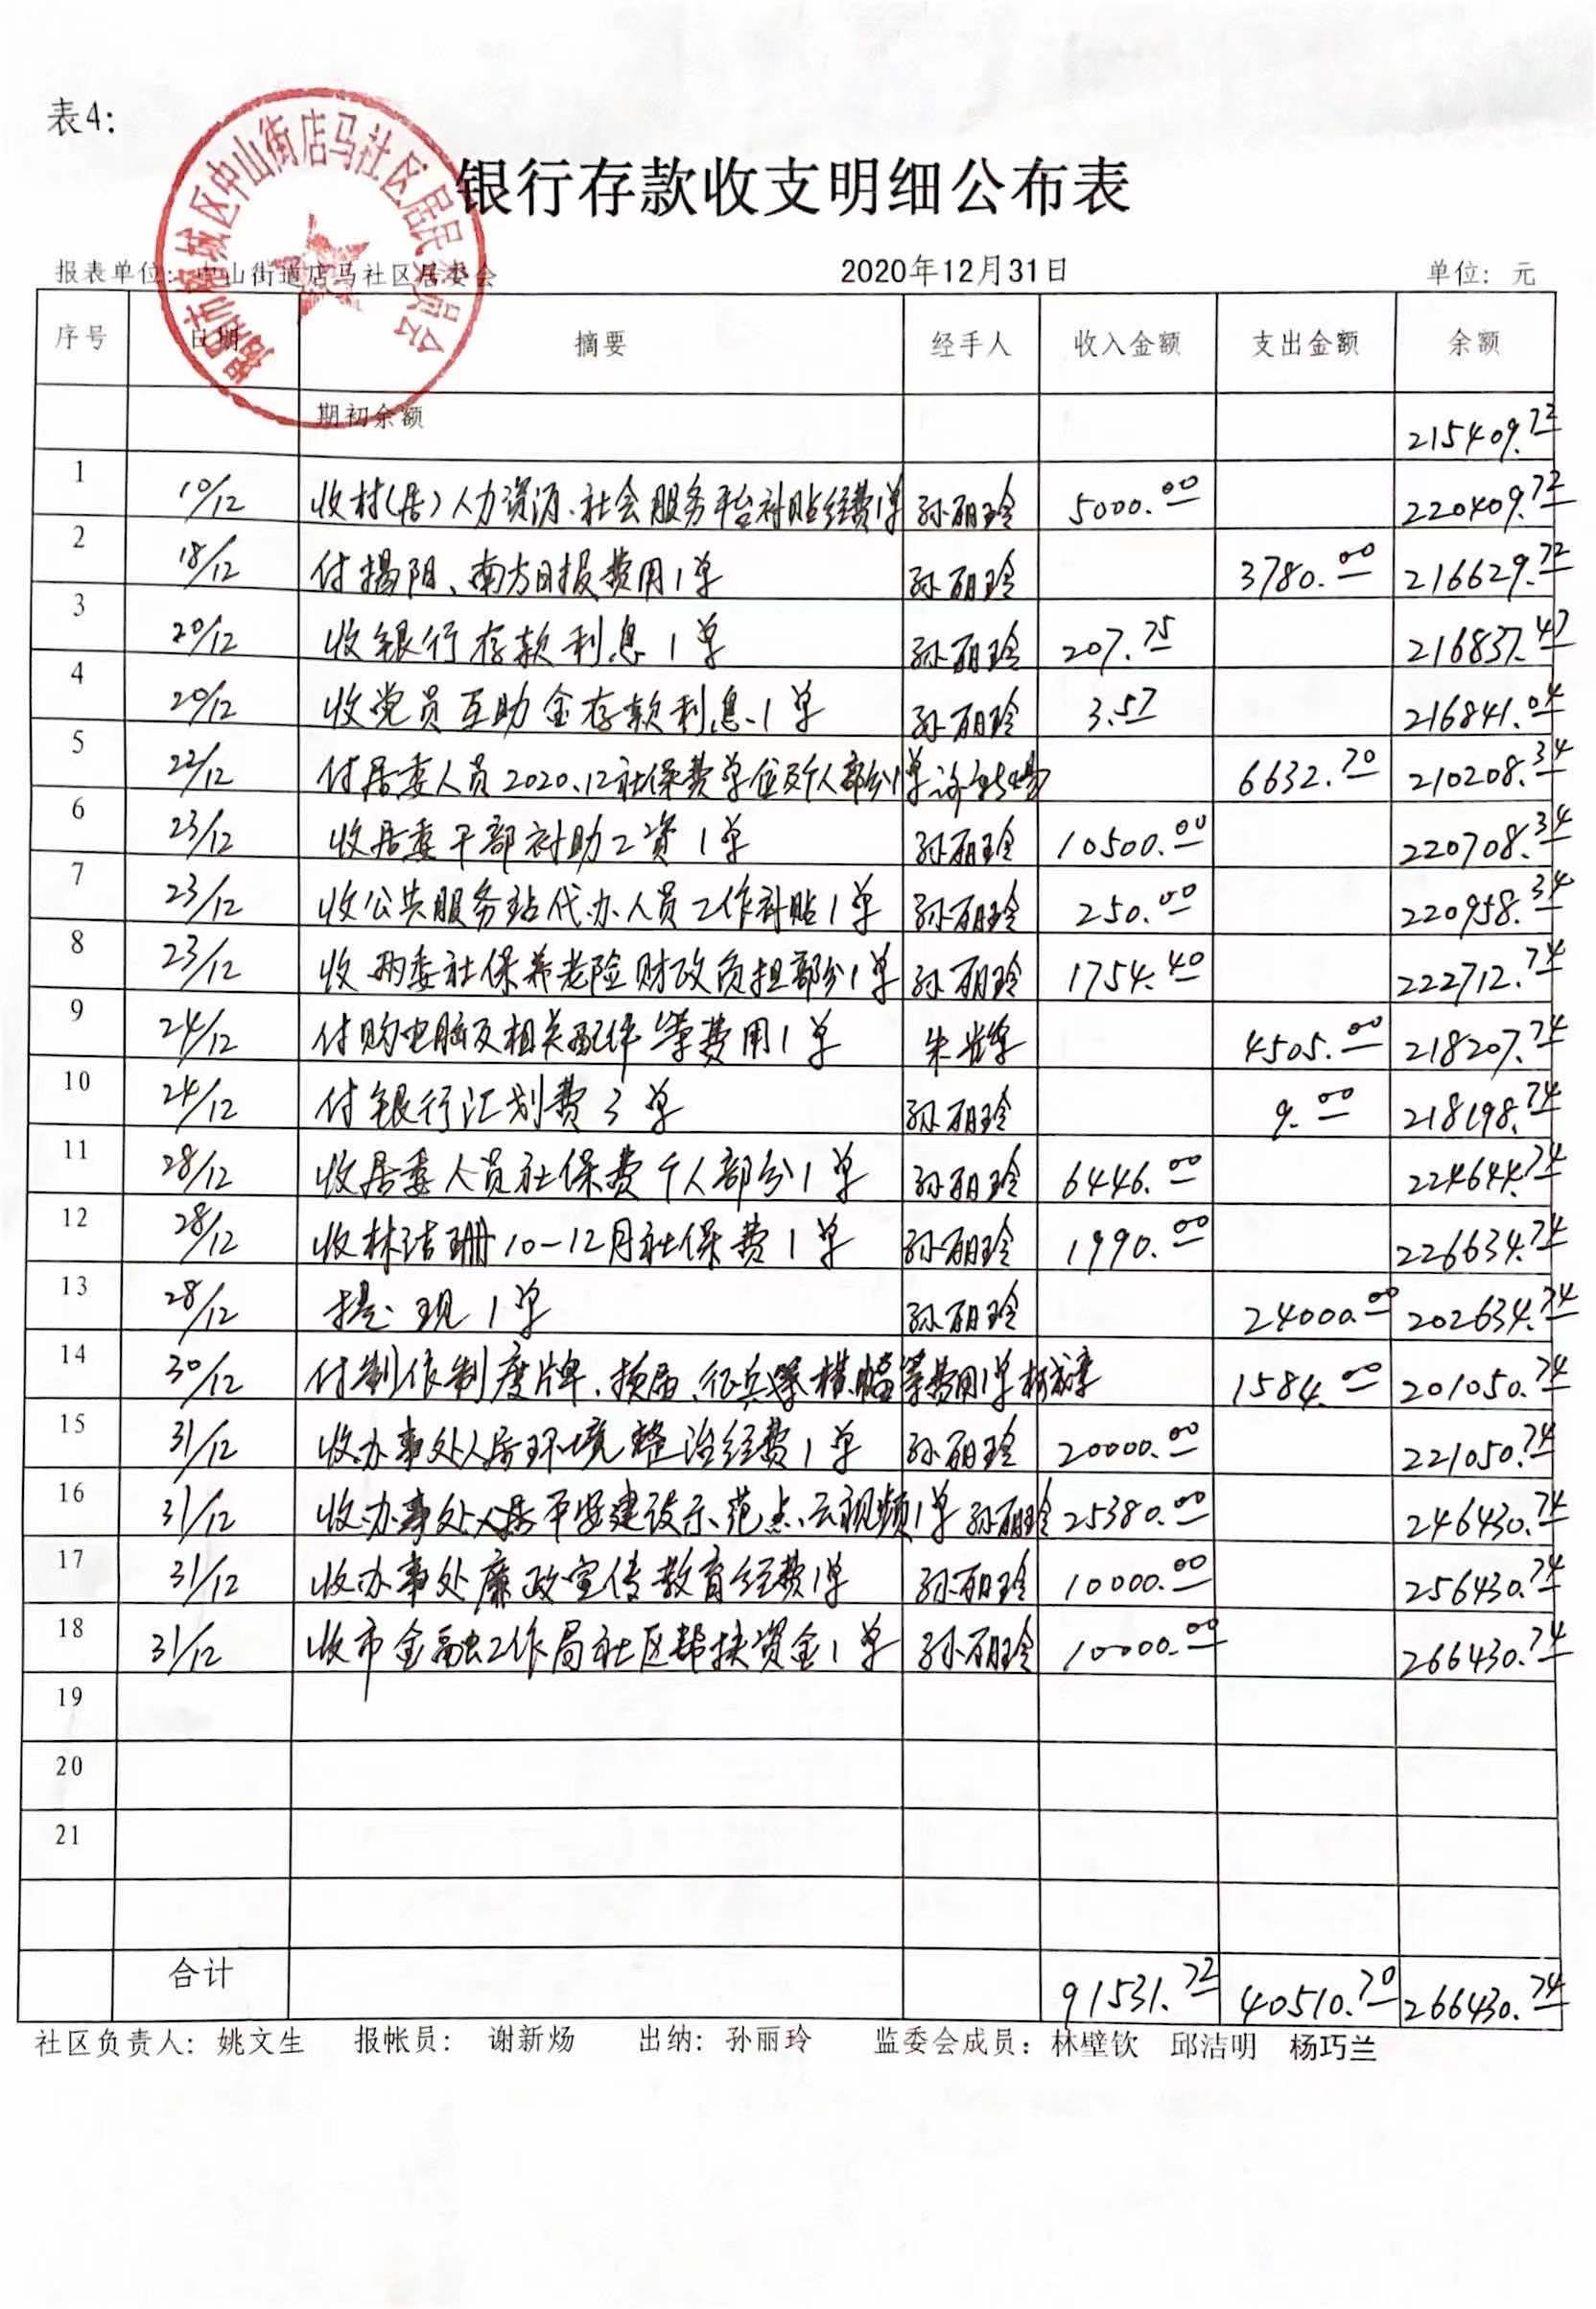 表4:
揭阳市榕城区中山街店马社区居民委员会
银行存款收支明细公布表
报表单位: 中山街道店马社区居委会 2020年12月31日 单位: 元
序号 日期 摘要 经手人 收入金额 支出金额 余额
期初余额 215409.72
1 10/12 收村(居)人力资源、社会服务平台补贴经费1单 孙丽玲 5000.00 220409.72
2 18/12 付揭阳、南方日报费用1单 孙丽玲 3780.00 216629.72
3 20/12 收银行存款利息1单 孙丽玲 207.75 216837.47
4 20/12 收党员互助金存款利息1单 孙丽玲 3.57 216841.04
5 22/12 付居委人员2020.12社保费单位及个人部分1单 6632.70 210208.34
6 23/12 收居委干部补助工资1单 孙丽玲 10500.00 220708.34
7 23/12 收公共服务站代办人员工作补贴1单 孙丽玲 250.00 220958.34
8 23/12 收两委社保养老险财政负担部分1单 孙丽玲 1754.40 222712.74
9 24/12 付购电脑及相关配件等费用1单 朱 4505.00 218207.74
10 24/12 付银行汇划费3单 孙丽玲 9.00 218198.74
11 28/12 收居委人员社保费个人部分1单 孙丽玲 6446.00 224644.74
12 28/12 收林洁珊10-12月社保费1单 孙丽玲 1990.00 226634.74
13 28/12 提现1单 孙丽玲 24000.00 202634.74
14 30/12 付制作制度牌、换届、征兵等横幅等费用1单 1584.00 201050.74
15 31/12 收办事处人居环境整治经费1单 孙丽玲 20000.00 221050.74
16 31/12 收办事处人居平安建设示范点云视频1单 孙丽玲 25380.00 246430.74
17 31/12 收办事处廉政宣传教育经费1单 孙丽玲 10000.00 256430.74
18 31/12 收市金融工作局社区帮扶资金1单 孙丽玲 10000.00 266430.74
19
20
21
合计 91531.72 40510.70 266430.74
社区负责人: 姚文生 报帐员: 谢新炀 出纳: 孙丽玲 监委会成员: 林壁钦 邱洁明 杨巧兰